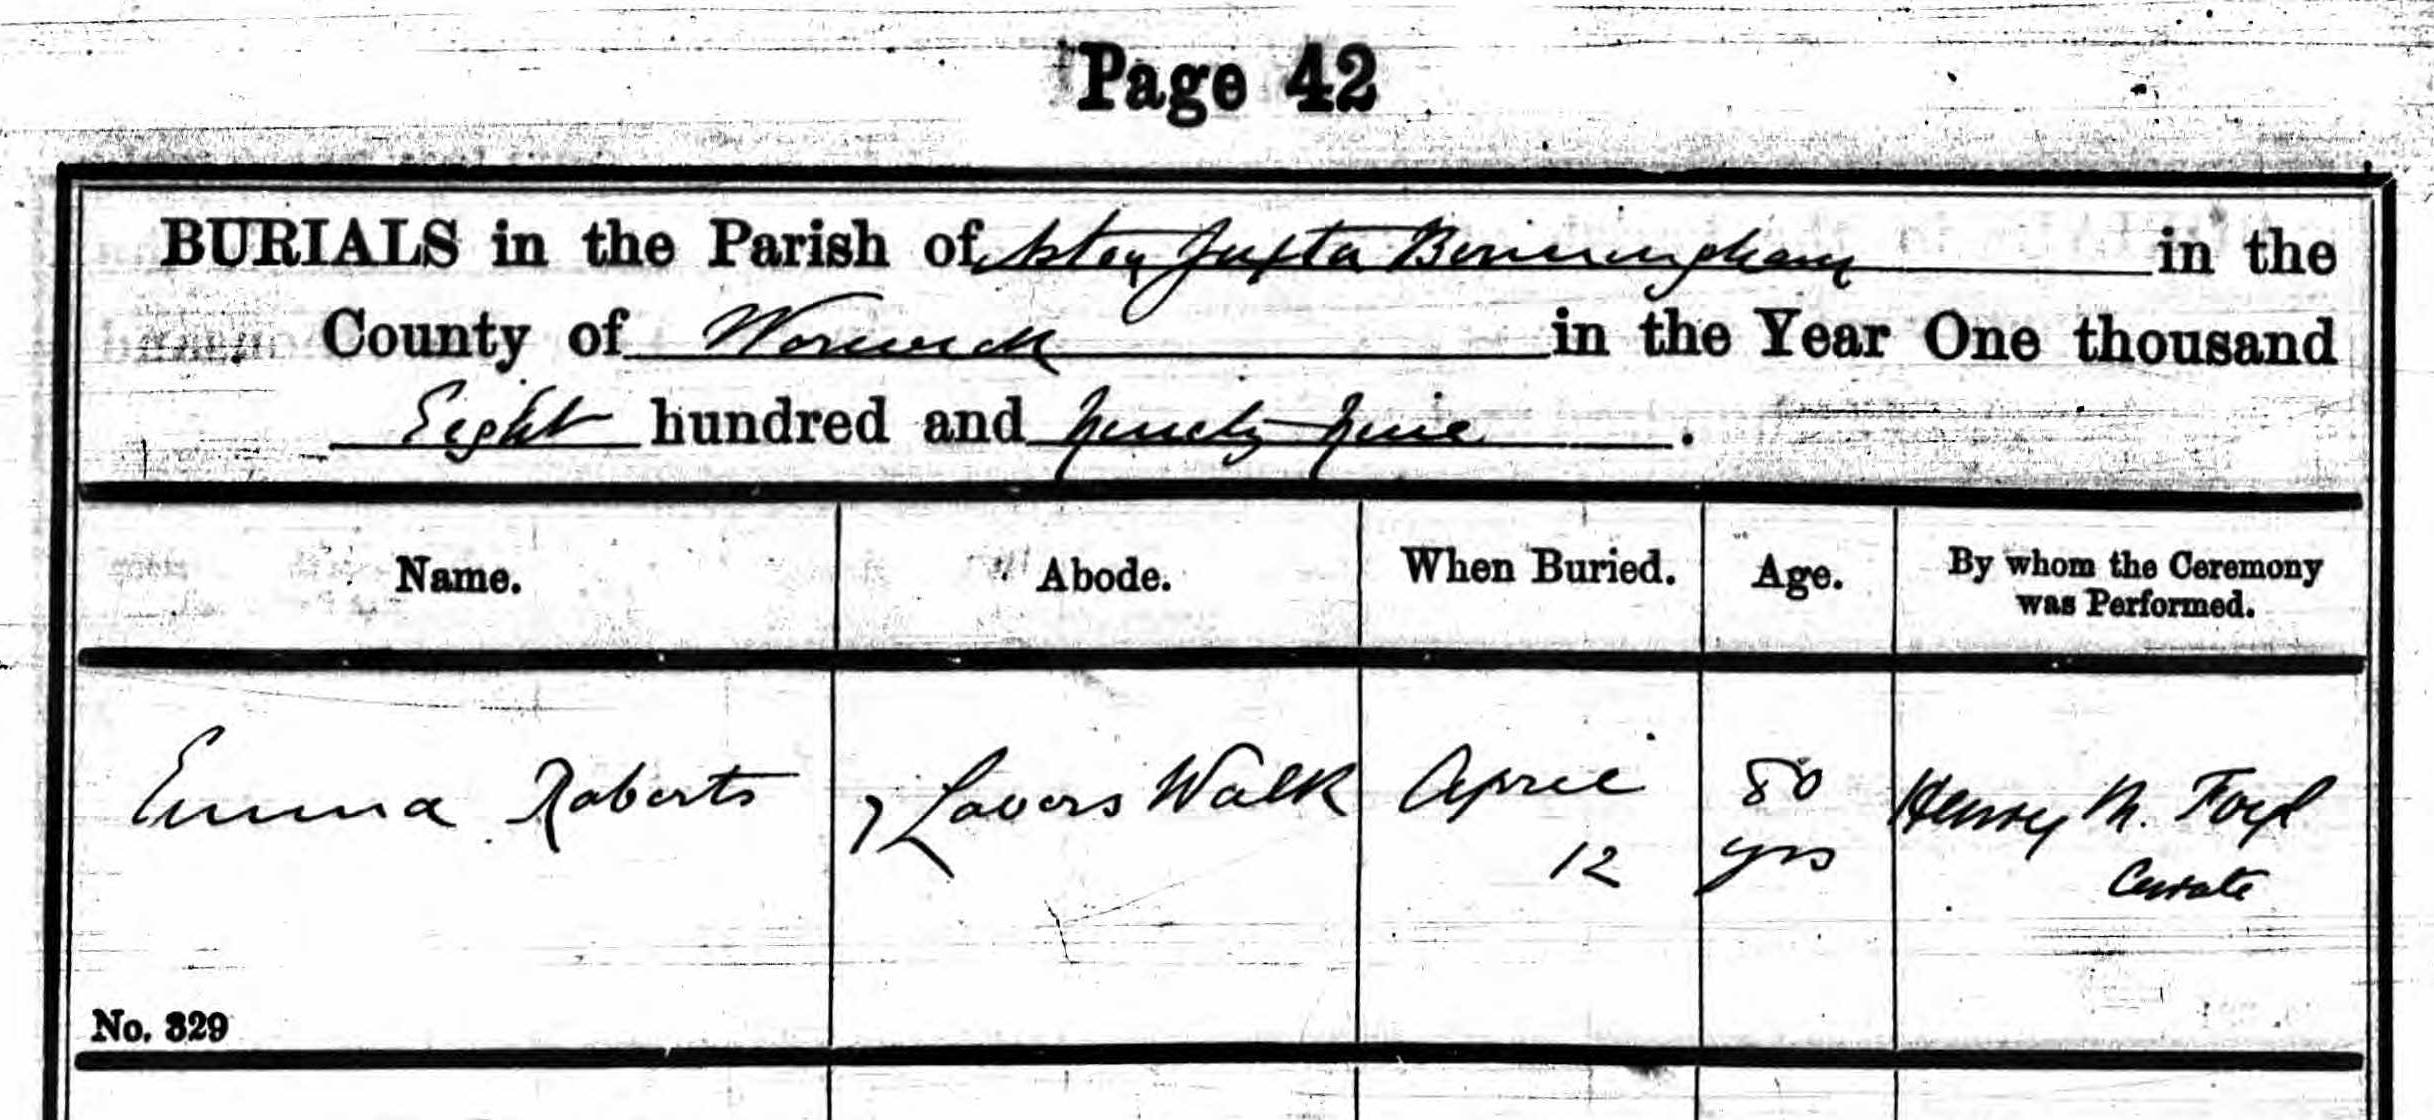 Page 42
BURIALS in the Parish of Aston Juxta Birmingham in the
County of Warwick in the Year One thousand
Eight hundred and Ninety Nine.
Name. Abode. When Buried. Age. By whom the Ceremony
was Performed.
Emma Roberts 7 Lovers Walk April 80 Henry M.
12 yrs Curate
No. 329